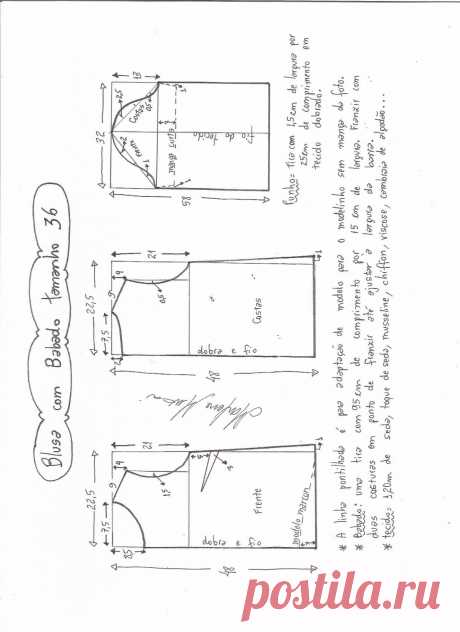 Blusa com Babado tamanho 36
32
13
2,5
Costas
0,5
2
Frente
1
fio do tecido
58
Punho= tira com 1,5cm de largura por
25cm de comprimento em
tecido dobrado.
22,5
7,5
9
4
21
2
0,5
Costas
dobra e fio
48
1
22,5
7,5
9
4
21
8,5
1,5
Frente
dobra e fio
48
1
* A linha pontilhada é para adaptação de modelo para o modelinho sem manga da foto.
* Babado: uma tira com 95cm de comprimento por 15 cm de largura. Franzir com
duas costuras em ponto de franzir até ajustar a largura da barra.
* tecido: 1,20m de seda, toque de seda, musseline, chiffon, viscose, cambraia de algodão...
postila.ru